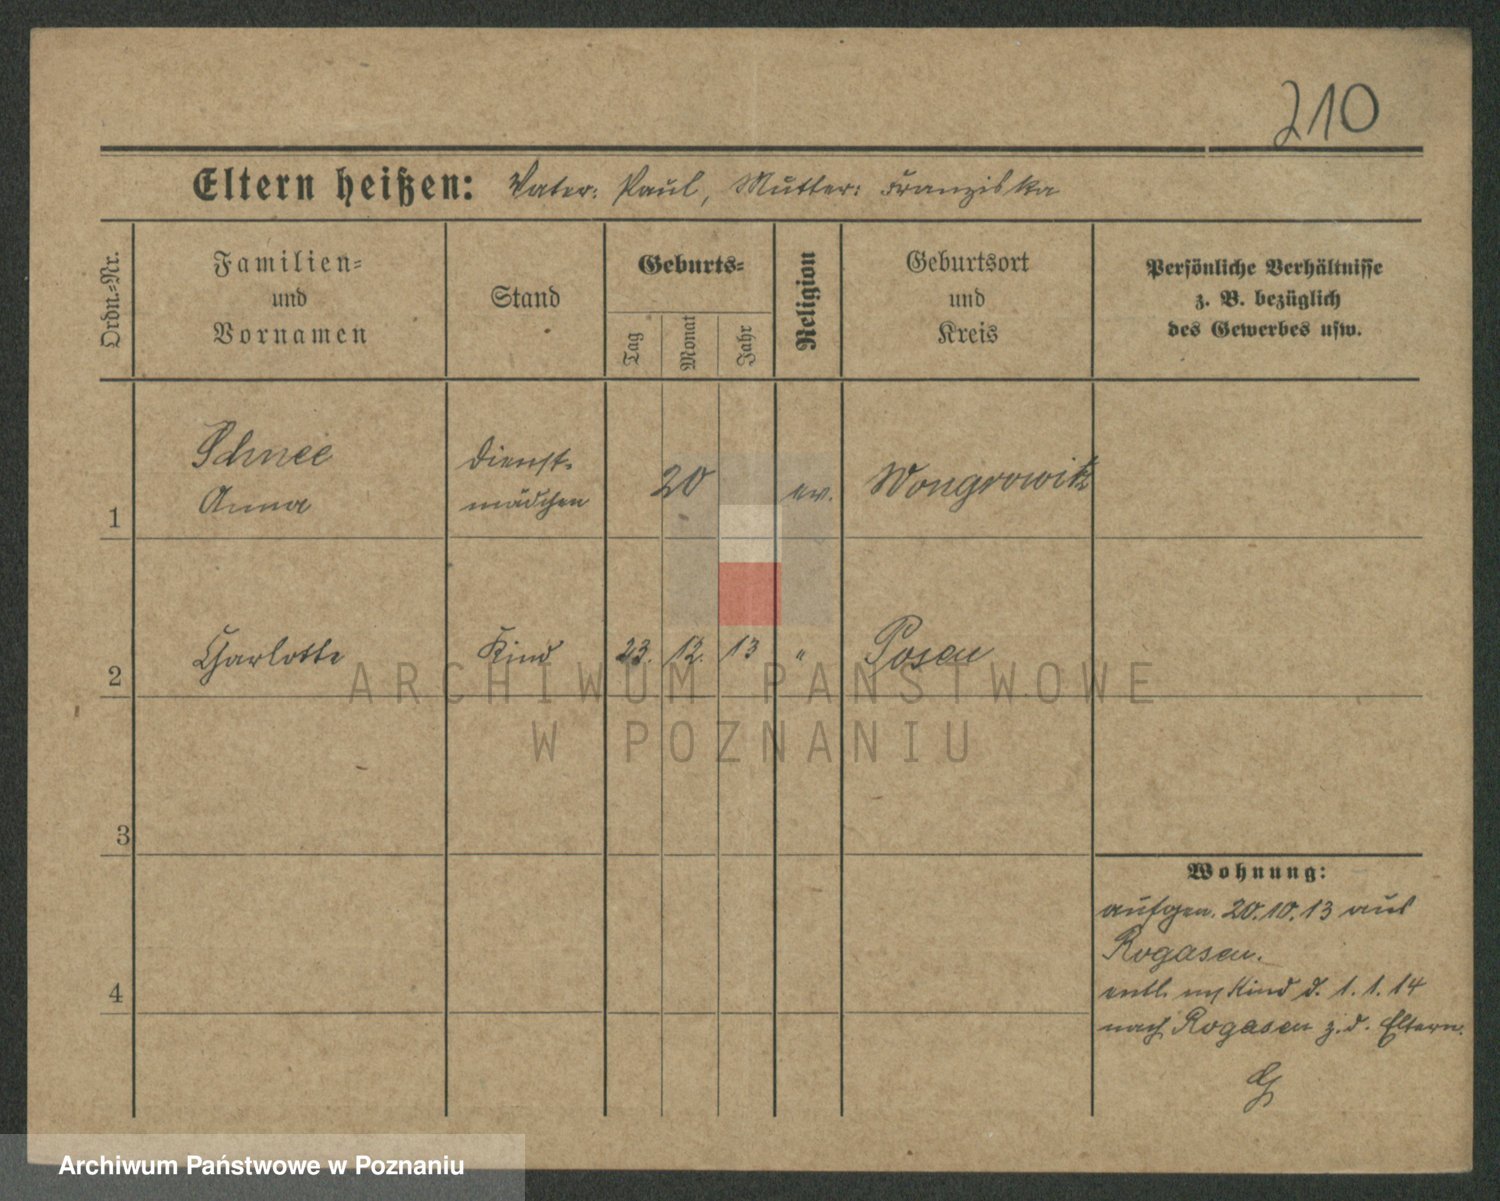 210
Eltern heißen: Vater: Paul, Mutter: Franziska
Ordn.-Nr.
Familien-
und
Vornamen
Stand
Geburts-
Tag
Monat
Jahr
Religion
Geburtsort
und
Kreis
Persönliche Verhältnisse
z. B. bezüglich
des Gewerbes usw.
1
Schnee
Anna
Dienst-
mädchen
20
ev.
Wongrowitz
2
Charlotte
Kind
23. 12. 13
"
Posen
3
4
Wohnung:
aufgen. 20.10.13 aus
Rogasen.
entl. m Kind d. 1.1.14
nach Rogasen z. d. Eltern.
ARCHIWUM PAŃSTWOWE
W POZNANIU
Archiwum Państwowe w Poznaniu